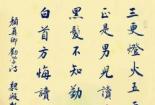 三更燈火五
正是男兒讀
黑髮不知勤
白首方悔讀
顏真卿勸學詩